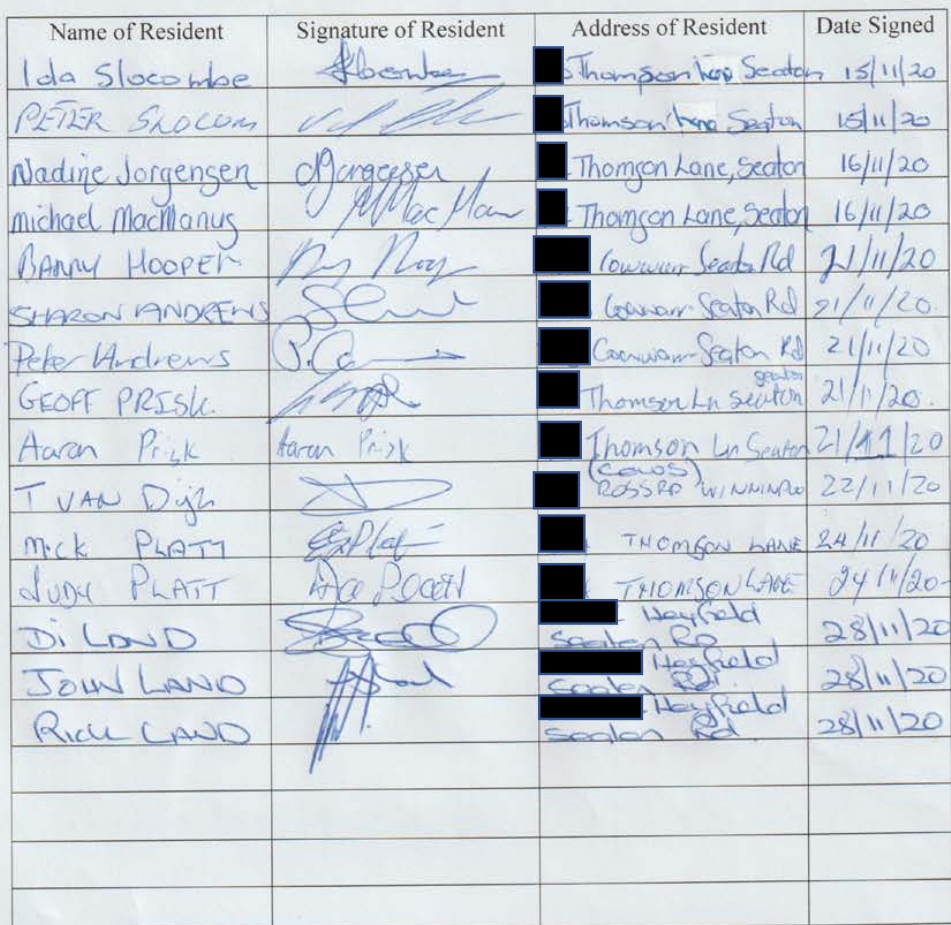 Name of Resident Signature of Resident Address of Resident Date Signed
Ida Slocombe Thompson Lane Seaton 15/11/20
PETER SLOCUM Thomson Lane Seaton 15/11/20
Nadine Jorgensen Thomson Lane, Seaton 16/11/20
michael MacManus Thomson Lane, Seaton 16/11/20
BARRY HOOPER Seaton Rd 21/11/20
SHARON ANDREWS Seaton Rd 21/11/20
Peter Andrews Seaton Rd 21/11/20
seaton
GEOFF PRISK. Thomson Ln Seaton 21/11/20.
Aaron Prisk Aaron Prisk Thomson Ln Seaton 21/11/20
(COWS)
T VAN Dijk ROSS RD 22/11/20
Mick PLATT THOMSON LANE 24/11/20
JUDY PLATT THOMSON LANE 24/11/20
Hayfield
Di LAND Seaton Rd 28/11/20
Hayfield
JOHN LAND Seaton Rd. 28/11/20
Hayfield
RICK LAND Seaton Rd 28/11/20